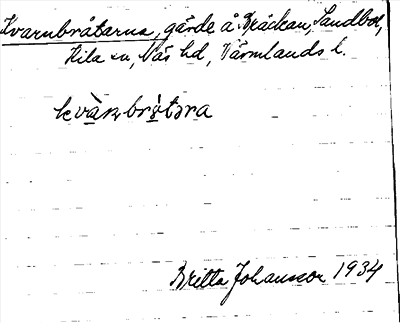 Kvarnbråtarna, gärde å Bräckan, Sandbol,
Kila sn, Näs hd, Värmlands l.
kvà̱ṇbrò̱təra
Britta Johansson 1934